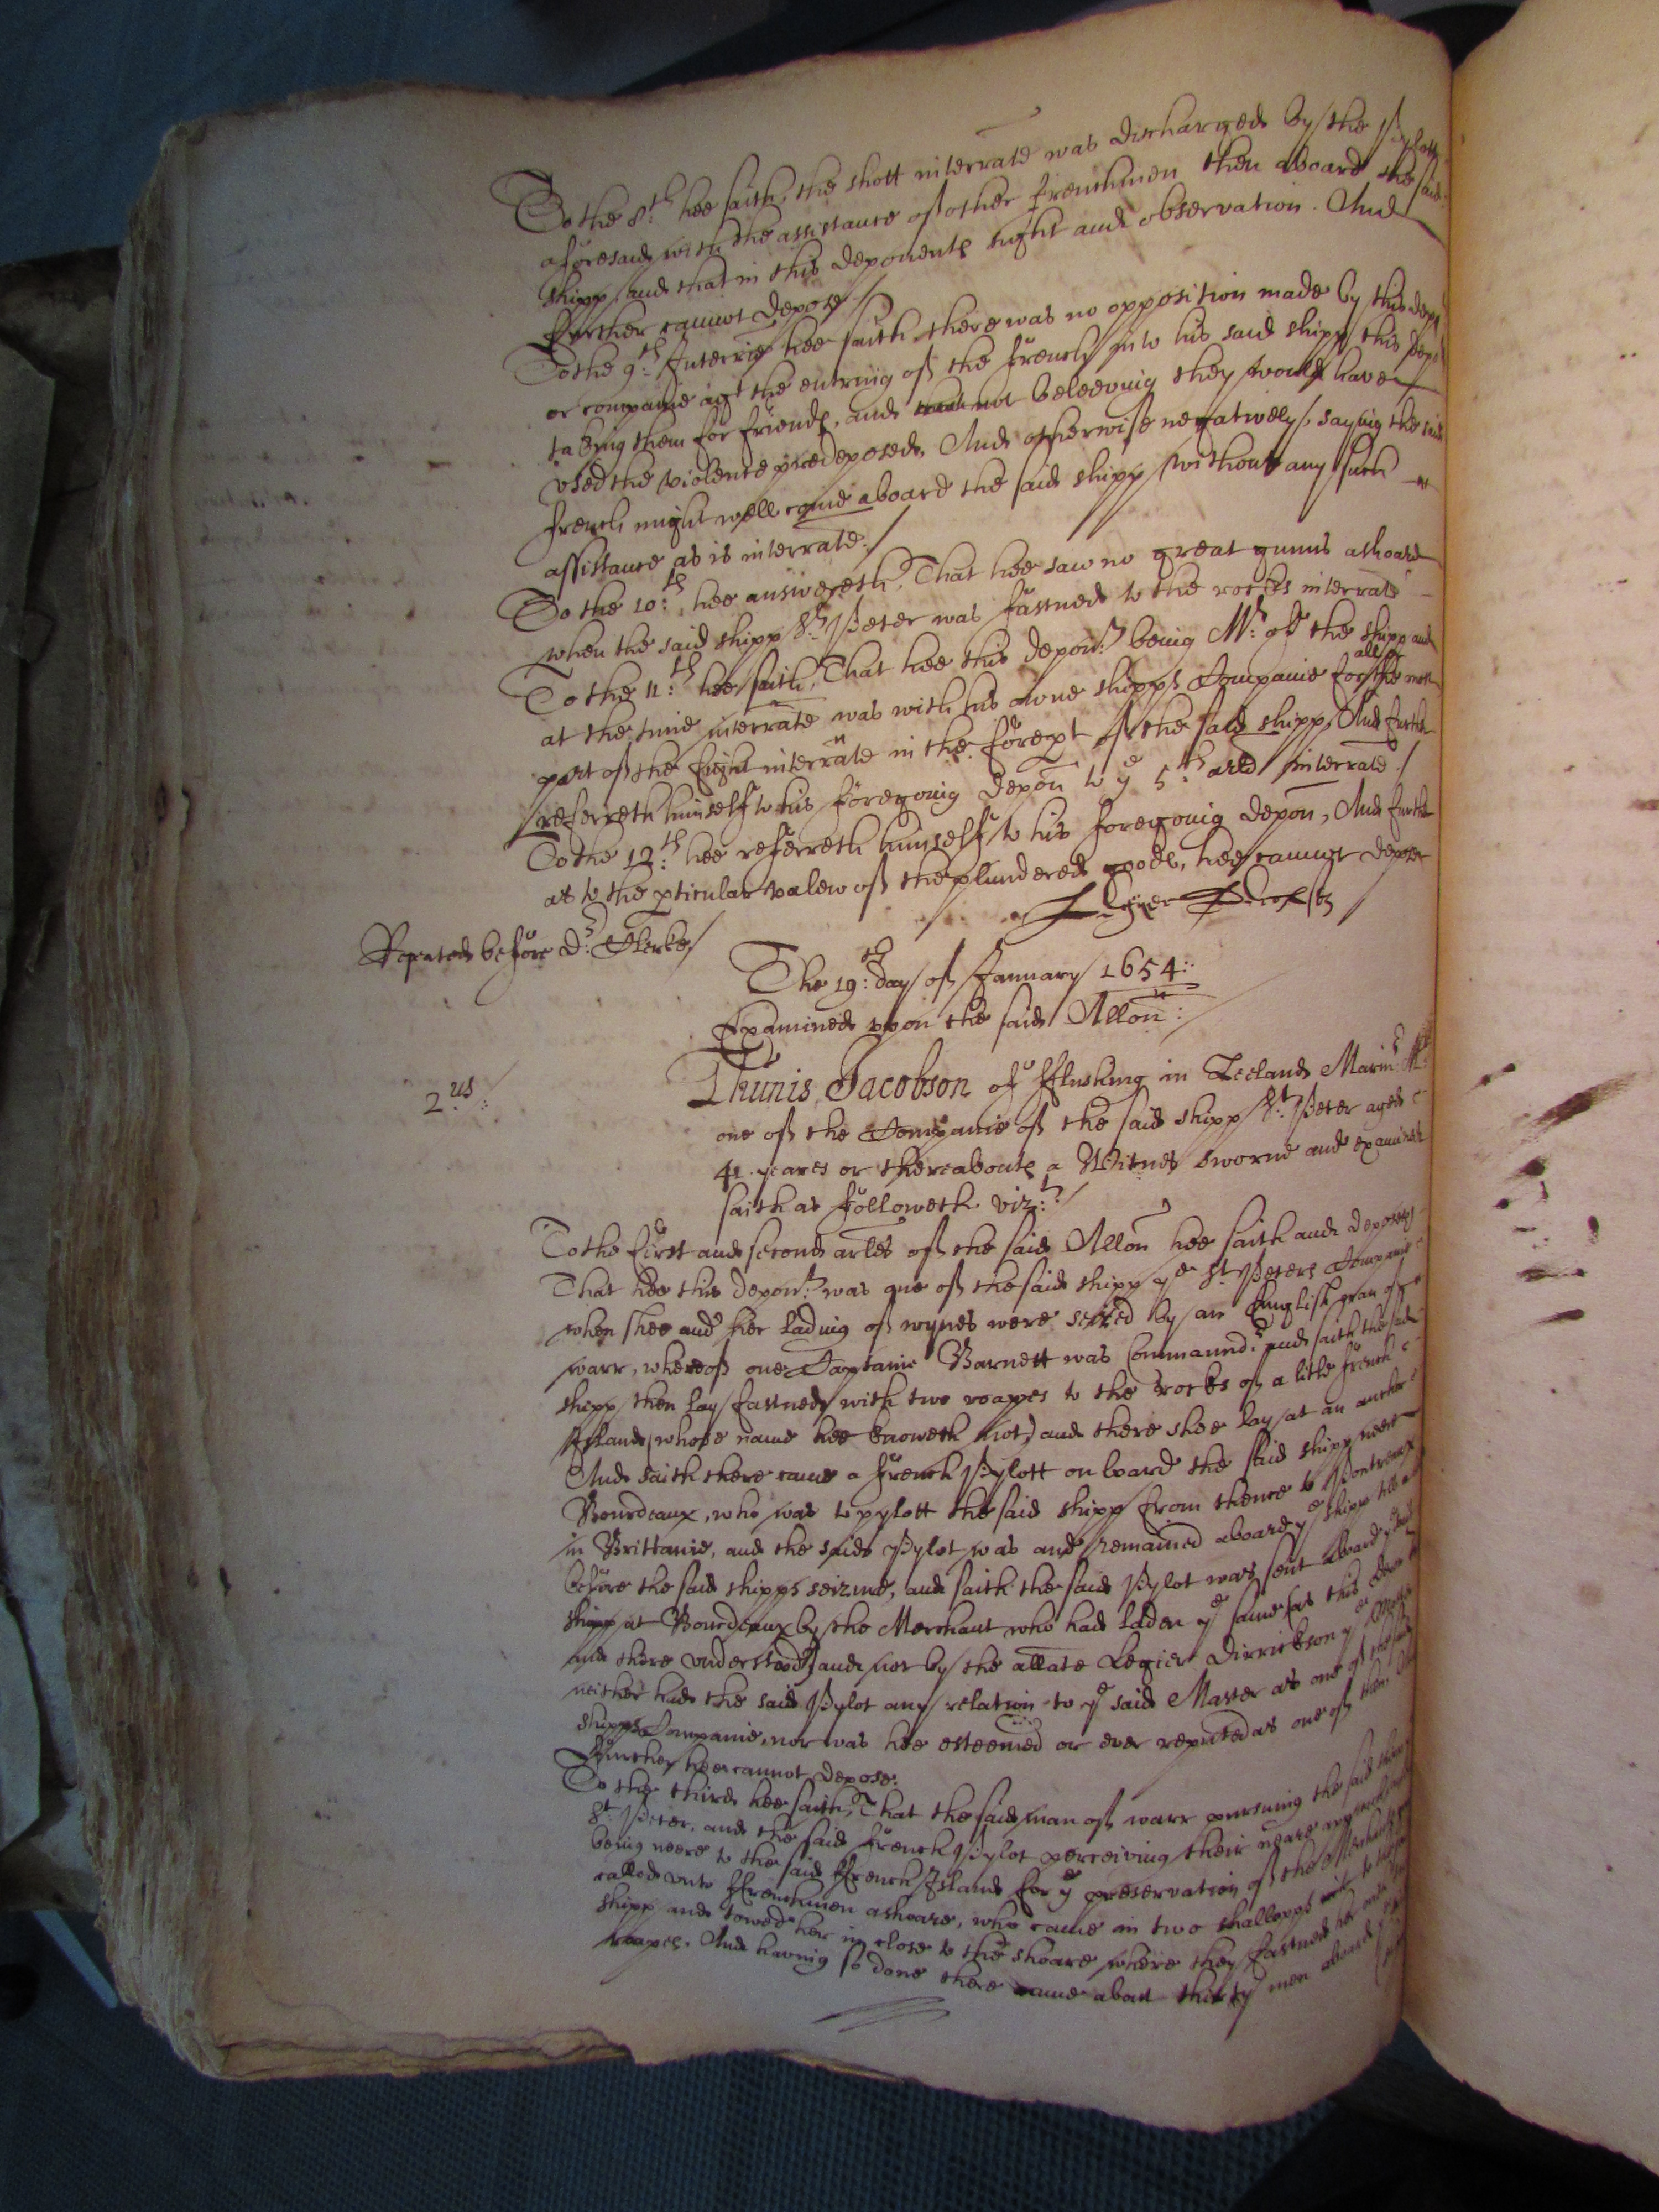 To the 8:th hee saith, the shott interrate was discharged by the Pylott
aforesaid with the assistance of other frenchmen then aboard the said
shipp, and that in this deponents sight and observation. And
further cannot depose./
To the 9:th Interrie hee saith there was no opposition made by this dept
or companie agt the entring of the french into his said shipp this dept
taking them for friends, and not beleeving they would have
vsed the violence predeposed, And otherwise negatively, saying the said
french might well come aboard the said shipp without any such
assistance as is interrate./
To the 10:th hee answereth, That hee saw no great gunns ashoare
when the said shipp St: Peter was fastned to the rocks interrate
To the 11:th hee saith, That hee this depont: being Mr: of the shipp and
at the time interrate was with his owne shipps Companie for all the most
part of the fight interrate in the of the said shipp, And further
referreth himself to his foregoing depon to ye 5:th arle interrate./
To the 12:th hee referreth himself to his foregoing depon, And further
as to the pticular valew of the plundered goods, hee cannot depose
Repeated before Dr: Clerke/
The 19:th day of January 1654:
Examined vpon the said Allon:/
2.us/:
Thunis Jacobson of Flushing in Zeeland Marinr
one of the Companie of the said shipp St: Peter aged
41 yeares or thereabouts a Witnes sworne and examined
saith as followeth vizt:/
To the first and second arles of the said Allon hee saith and deposeth
That hee this depont: was one of the said shipp ye St: Peters Companie
when shee and her lading of wynes were seized by an English man of
warr, whereof one Captaine Barnett was Commaundr: and saith the said
shipp then lay fastned with two roapes to the rocks of a litle french
Island (whose name hee knoweth not) and there shee lay at an anchor
And saith there came a french Pylott on board the said shipp neere
Bourdeaux, who was to pylott the said shipp from thence to
in Brittanie, and the said Pylot was and remained aboard ye shipp till
before the said shipps seizure, and saith the said Pylot was sent aboard ye said
shipp at Bourdeaux by the Merchant who had laden ye same (as this dept
then there vnderstood) and not by the allate Legier Dirrickson ye Master
neither had the said Pylot any relation to ye said Master as one of the said
shipps Companie, nor was hee esteemed or ever reputed as one of them. And
further hee cannot depose.
To the third hee saith, That the said man of warr pursuing the said shipp
St Peter, and the said french Pylot perceiving their neare
being neere to the said ffrench Island for ye preservation of the Merchants
called vnto ffrenchmen ashoare, who came in two shallopps to the
shipp and towed her in close to the shoare where they fastned her with
roapes. And having so done there came about thirty men aboard